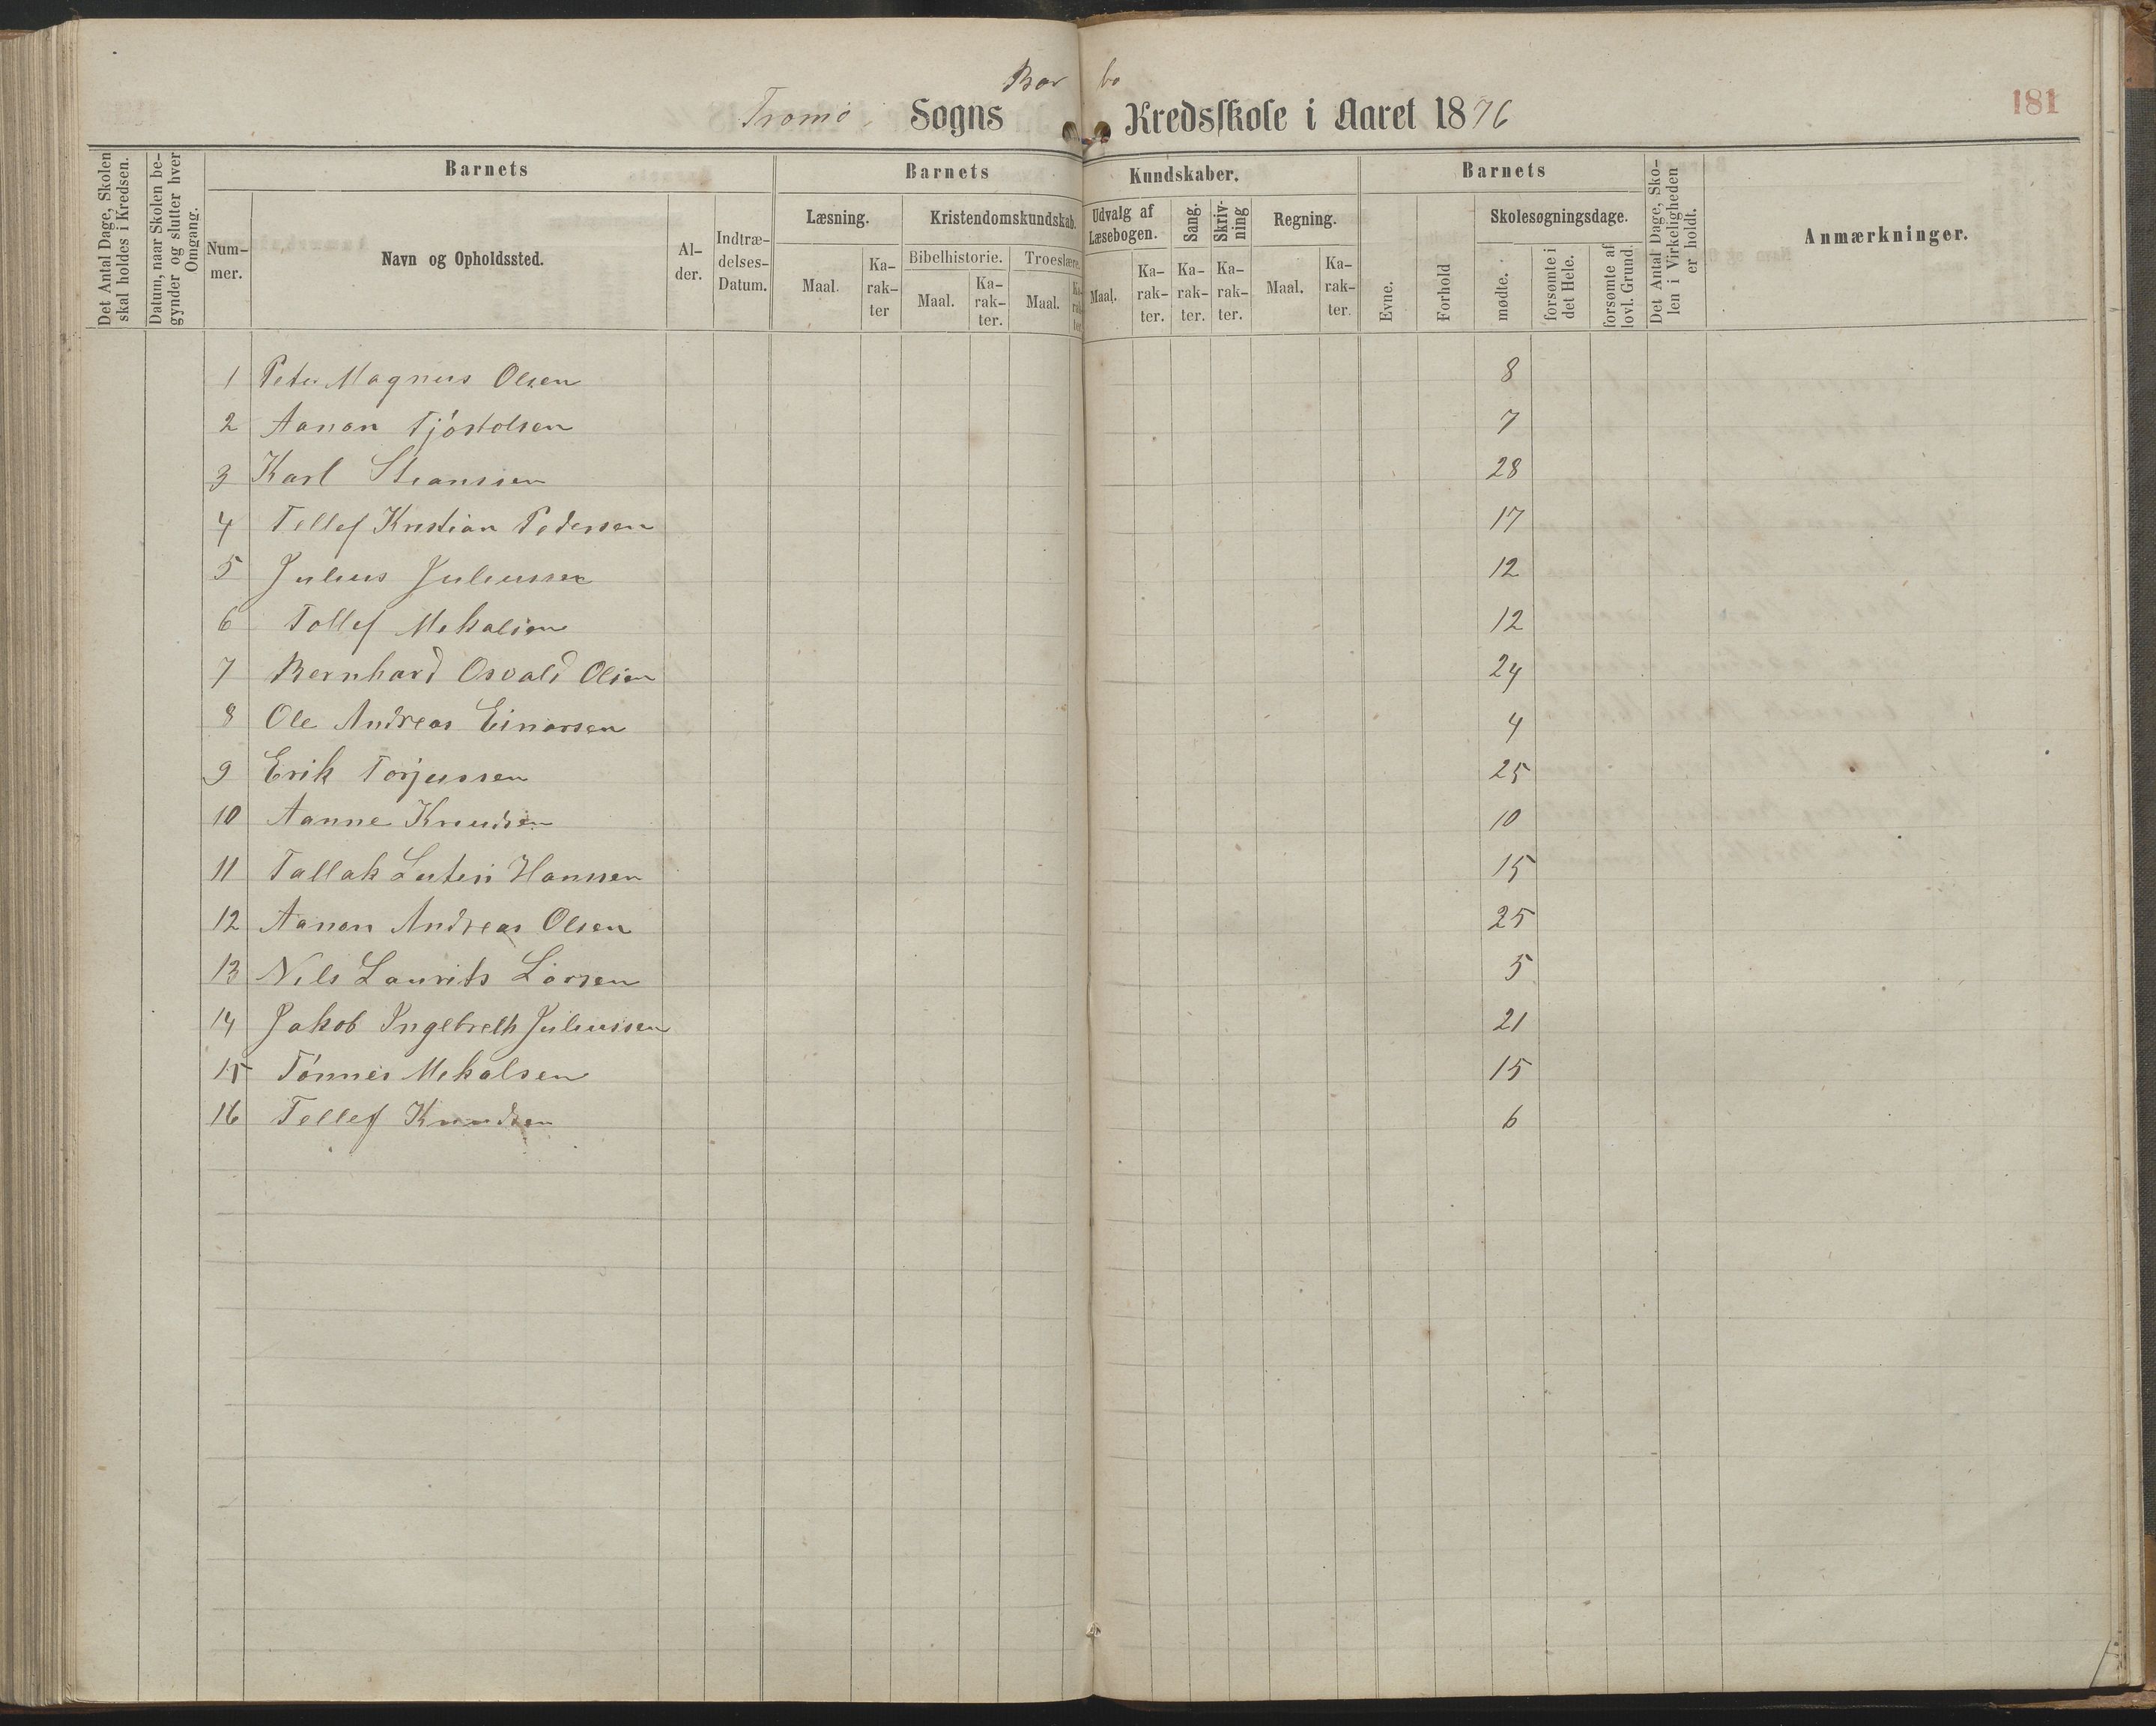 Barbo
Tromø Sogns Kredsskole i Aaret 1876
181
Det Antal Dage, Skolen skal holdes i Kredsen.
Datum, naar Skolen begynder og slutter hver Omgang.
Barnets
Barnets Kundskaber.
Barnets
Det Antal Dage, Skolen i Virkeligheden er holdt.
Anmærkninger.
Nummer.
Navn og Opholdssted.
Alder.
Indtrædelses-Datum.
Læsning.
Kristendomskundskab.
Udvalg af Læsebogen.
Sang.
Skrivning
Regning.
Evne.
Forhold
Skolesøgningsdage.
Bibelhistorie.
Troeslære.
Maal.
Karakter
Maal.
Karakter.
Maal.
Karakter
Maal.
Karakter.
Karakter.
Karakter.
Maal.
Karakter.
mødte.
forsømte i det Hele.
forsømte af lovl. Grund.
1 Peter Magnus Olsen 8
2 Aanon Tjöstolsen 7
3 Karl 28
4 Tellef Kristian Pedersen 17
5 Julius Juliussen 12
6 Tollef Mekalsen 12
7 Bernhard Osvald Olsen 24
8 Ole Andreas Einarsen 4
9 Erik Torjussen 25
10 Aanne Knudsen 10
11 Tallak Hanssen 15
12 Aanon Andreas Olsen 25
13 Nils Laurits Larsen 5
14 Jakob Ingebreth Juliussen 21
15 Tönnes Mekalsen 15
16 Tellef Knudsen 6